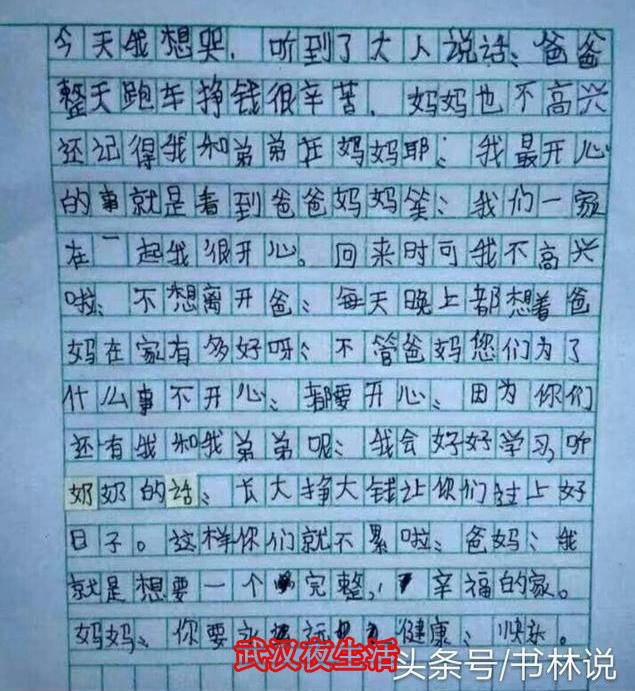 今天我想哭、听到了大人说话、爸爸
整天跑车挣钱很辛苦、妈妈也不高兴
还记得我和弟弟在妈妈耶、我最开心
的事就是看到爸爸妈妈笑、我们一家
在一起我很开心。回来时可我不高兴
啦、不想离开爸、每天晚上都想着爸
妈在家有多好呀、不管爸妈您们为了
什么事不开心、都要开心、因为你们
还有我和我弟弟呢、我会好好学习,听
奶奶的话、长大挣大钱让你们过上好
日子。这样你们就不累啦、爸妈、我
就是想要一个完整,辛福的家。
妈妈、你要永远健康、快乐。
武汉夜生活
头条号/书林说